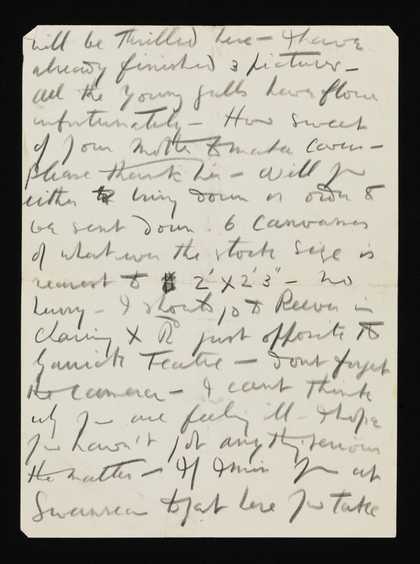 will be thrilled here – I have
already finished 3 pictures –
all the young gulls have flown
unfortunately – How sweet
of your mother to make covers –
Please thank her – Will you
either bring down or order &
be sent down 6 Canvasses
of whatever the stock size is
nearest to 2' x 2' 3" – no
hurry – I should go to Reeves in
Charing X Rd just opposite to
Garrick Teatre – Dont forget
the camera – I cant think
why you are feeling ill – I hope
you haven't got anything serious
the matter – If I miss you at
Swansea to get here you take